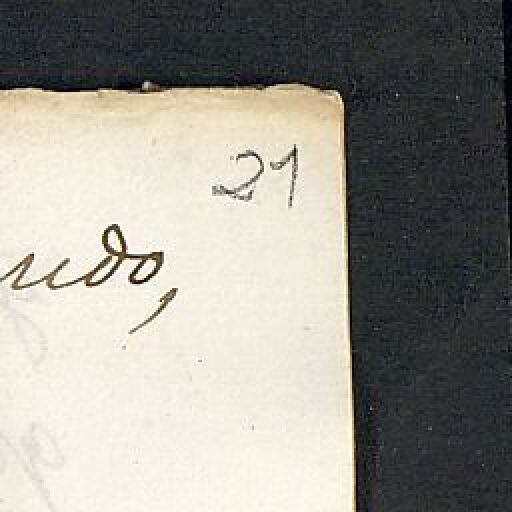 21
undo,